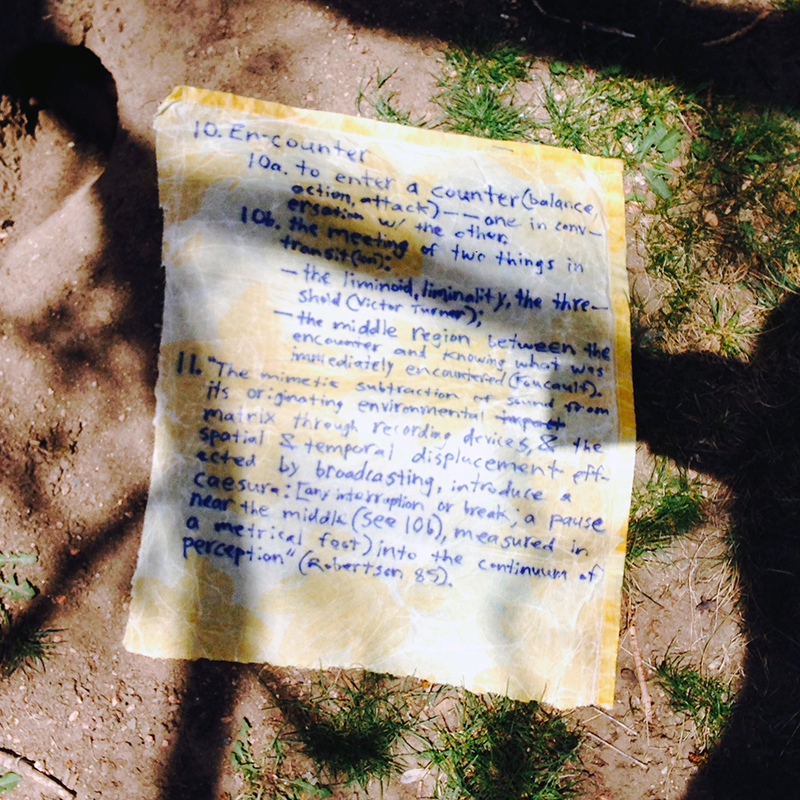 10. En-counter
10a. to enter a counter (balance,
action, attack) —— one in conv-
ersation w/ the other.
10b. the meeting of two things in
transit(on):
— the liminoid, liminality, the thre-
shold (Victor Turner);
— the middle region between the
encounter and knowing what was
immediately encountered (Foucault).
11. "The mimetic subtraction of sound from
its originating environmental impact
matrix through recording devices, & the
spatial & temporal displacement eff-
ected by broadcasting, introduce a
caesura: [any interruption or break; a pause
near the middle (see 10b), measured in
a metrical foot) into the continuum of
perception" (Robertson 85).